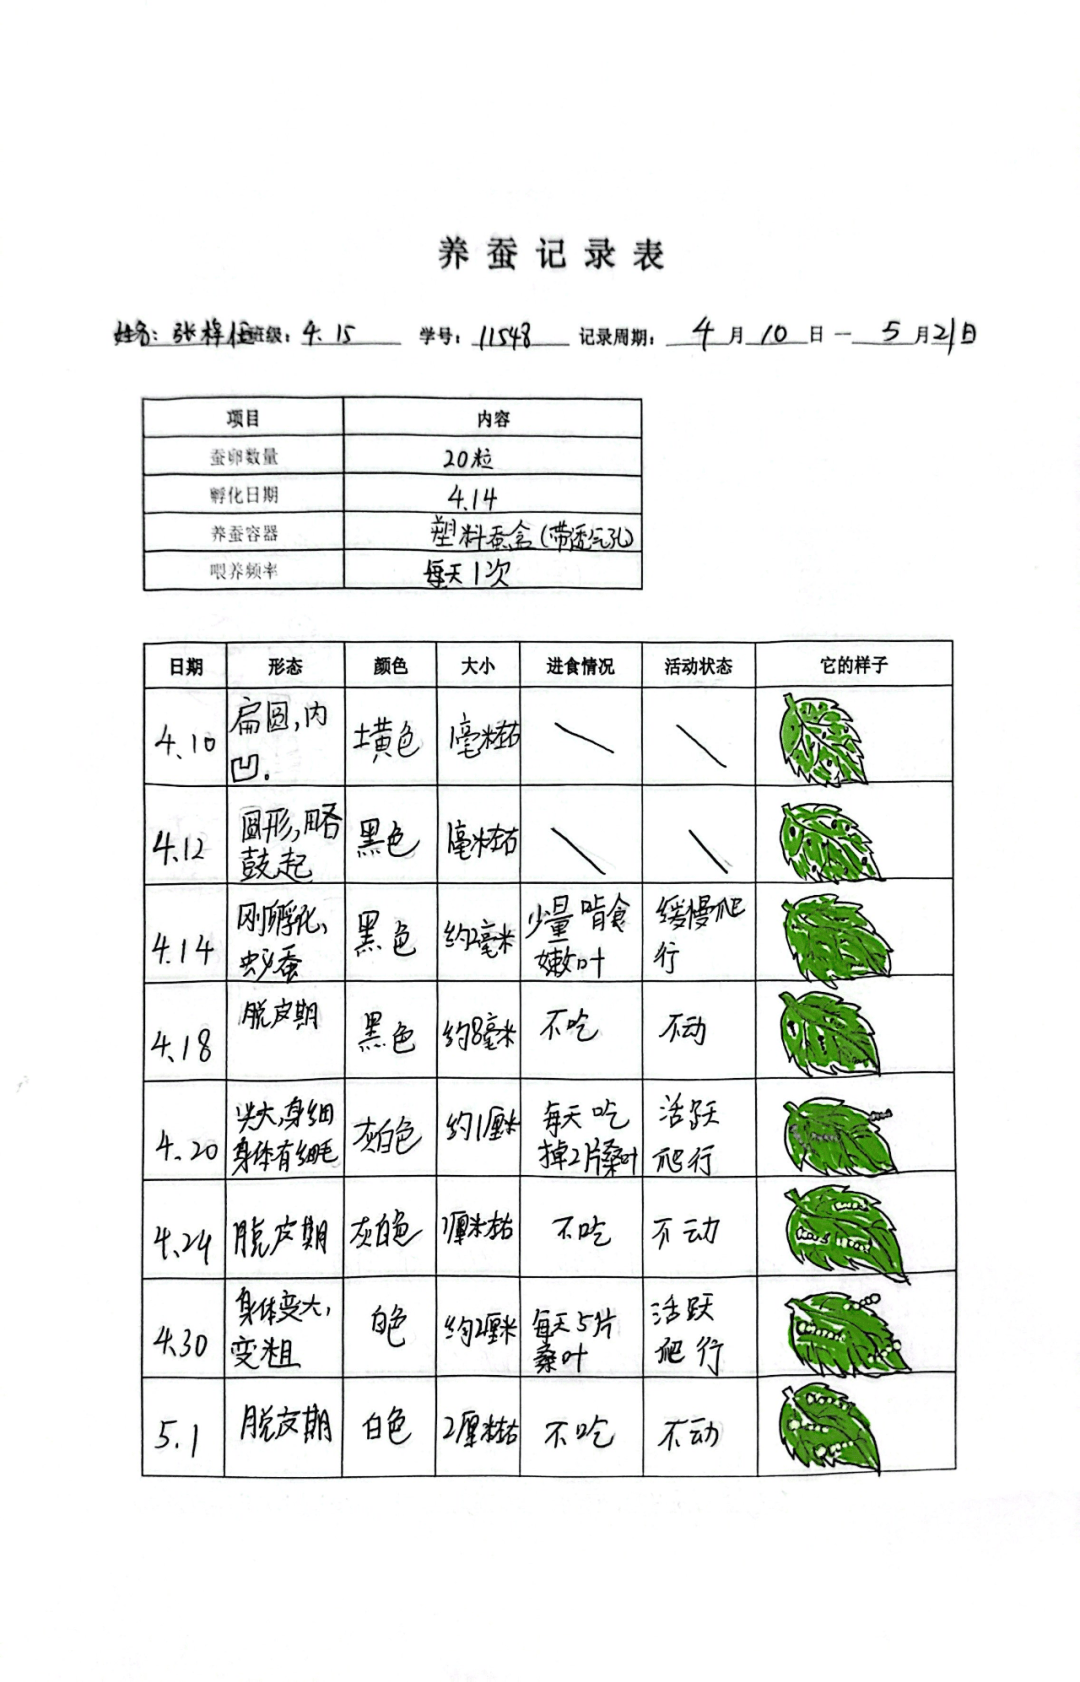 养蚕记录表
姓名：张梓 班级：4.15 学号：11548 记录周期：4月10日—5月21日
项目 内容
蚕卵数量 20粒
孵化日期 4.14
养蚕容器 塑料蚕盒(带透气孔)
喂养频率 每天1次
日期 形态 颜色 大小 进食情况 活动状态 它的样子
4.10 扁圆,内凹。 土黄色 1毫米左右 \ \
4.12 圆形,略鼓起 黑色 1毫米左右 \ \
4.14 刚孵化、蚁蚕 黑色 约2毫米 少量啃食嫩叶 缓慢爬行
4.18 脱皮期 黑色 约8毫米 不吃 不动
4.20 头大,身细身体有细毛 灰白色 约1厘米 每天吃掉2片桑叶 活跃爬行
4.24 脱皮期 灰白色 1厘米左右 不吃 不动
4.30 身体变大,变粗 白色 约2厘米 每天5片桑叶 活跃爬行
5.1 脱皮期 白色 2厘米左右 不吃 不动